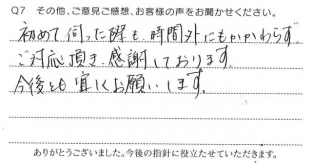 Q7 その他、ご意見ご感想、お客様の声をお聞かせください。
初めて伺った際も、時間外にもかかわらず、
ご対応頂き、感謝しております。
今後とも宜しくお願いします。
ありがとうございました。今後の指針に役立たせていただきます。